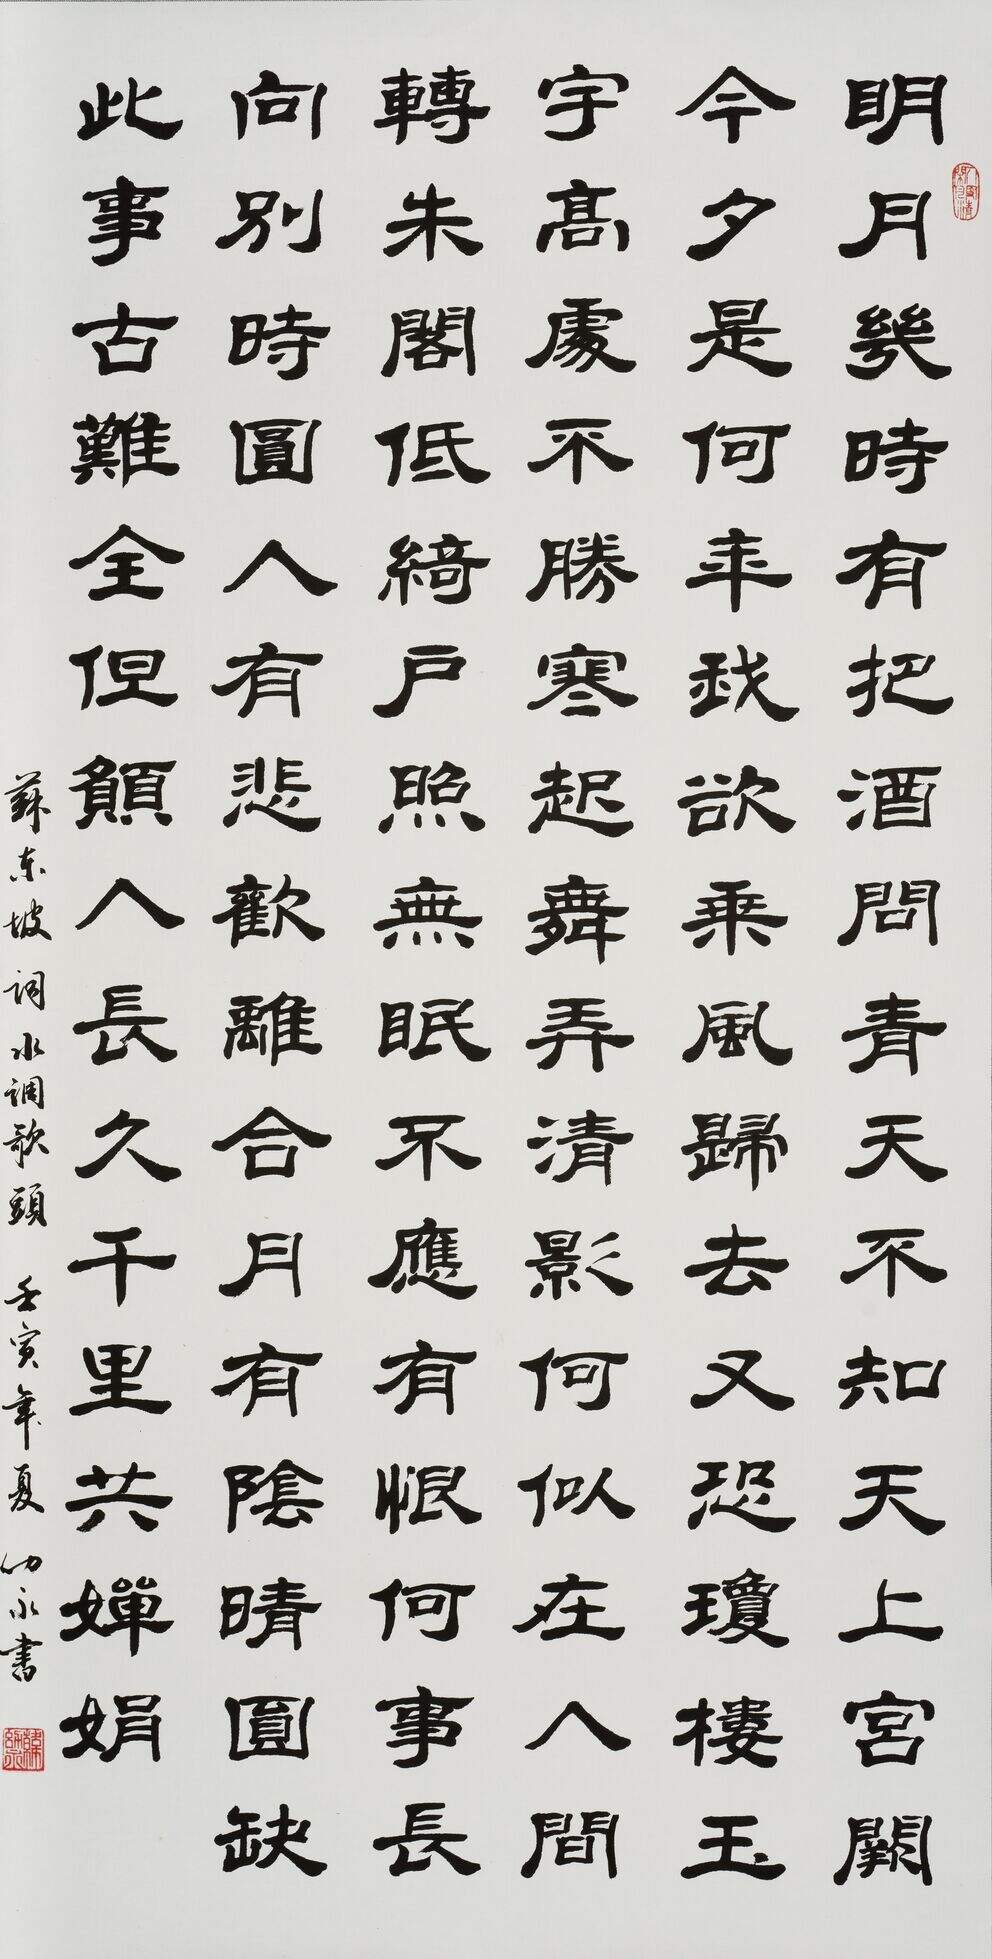 明月幾時有把酒問青天不知天上宮闕
今夕是何年我欲乘風歸去又恐瓊樓玉
宇髙處不勝寒起舞弄清影何似在人間
轉朱閣低綺戶照無眠不應有恨何事長
向別時圓人有悲歡離合月有陰晴圓缺
此事古難全但願人長久千里共嬋娟
蘇東坡詞水調歌頭 壬寅年夏 永書